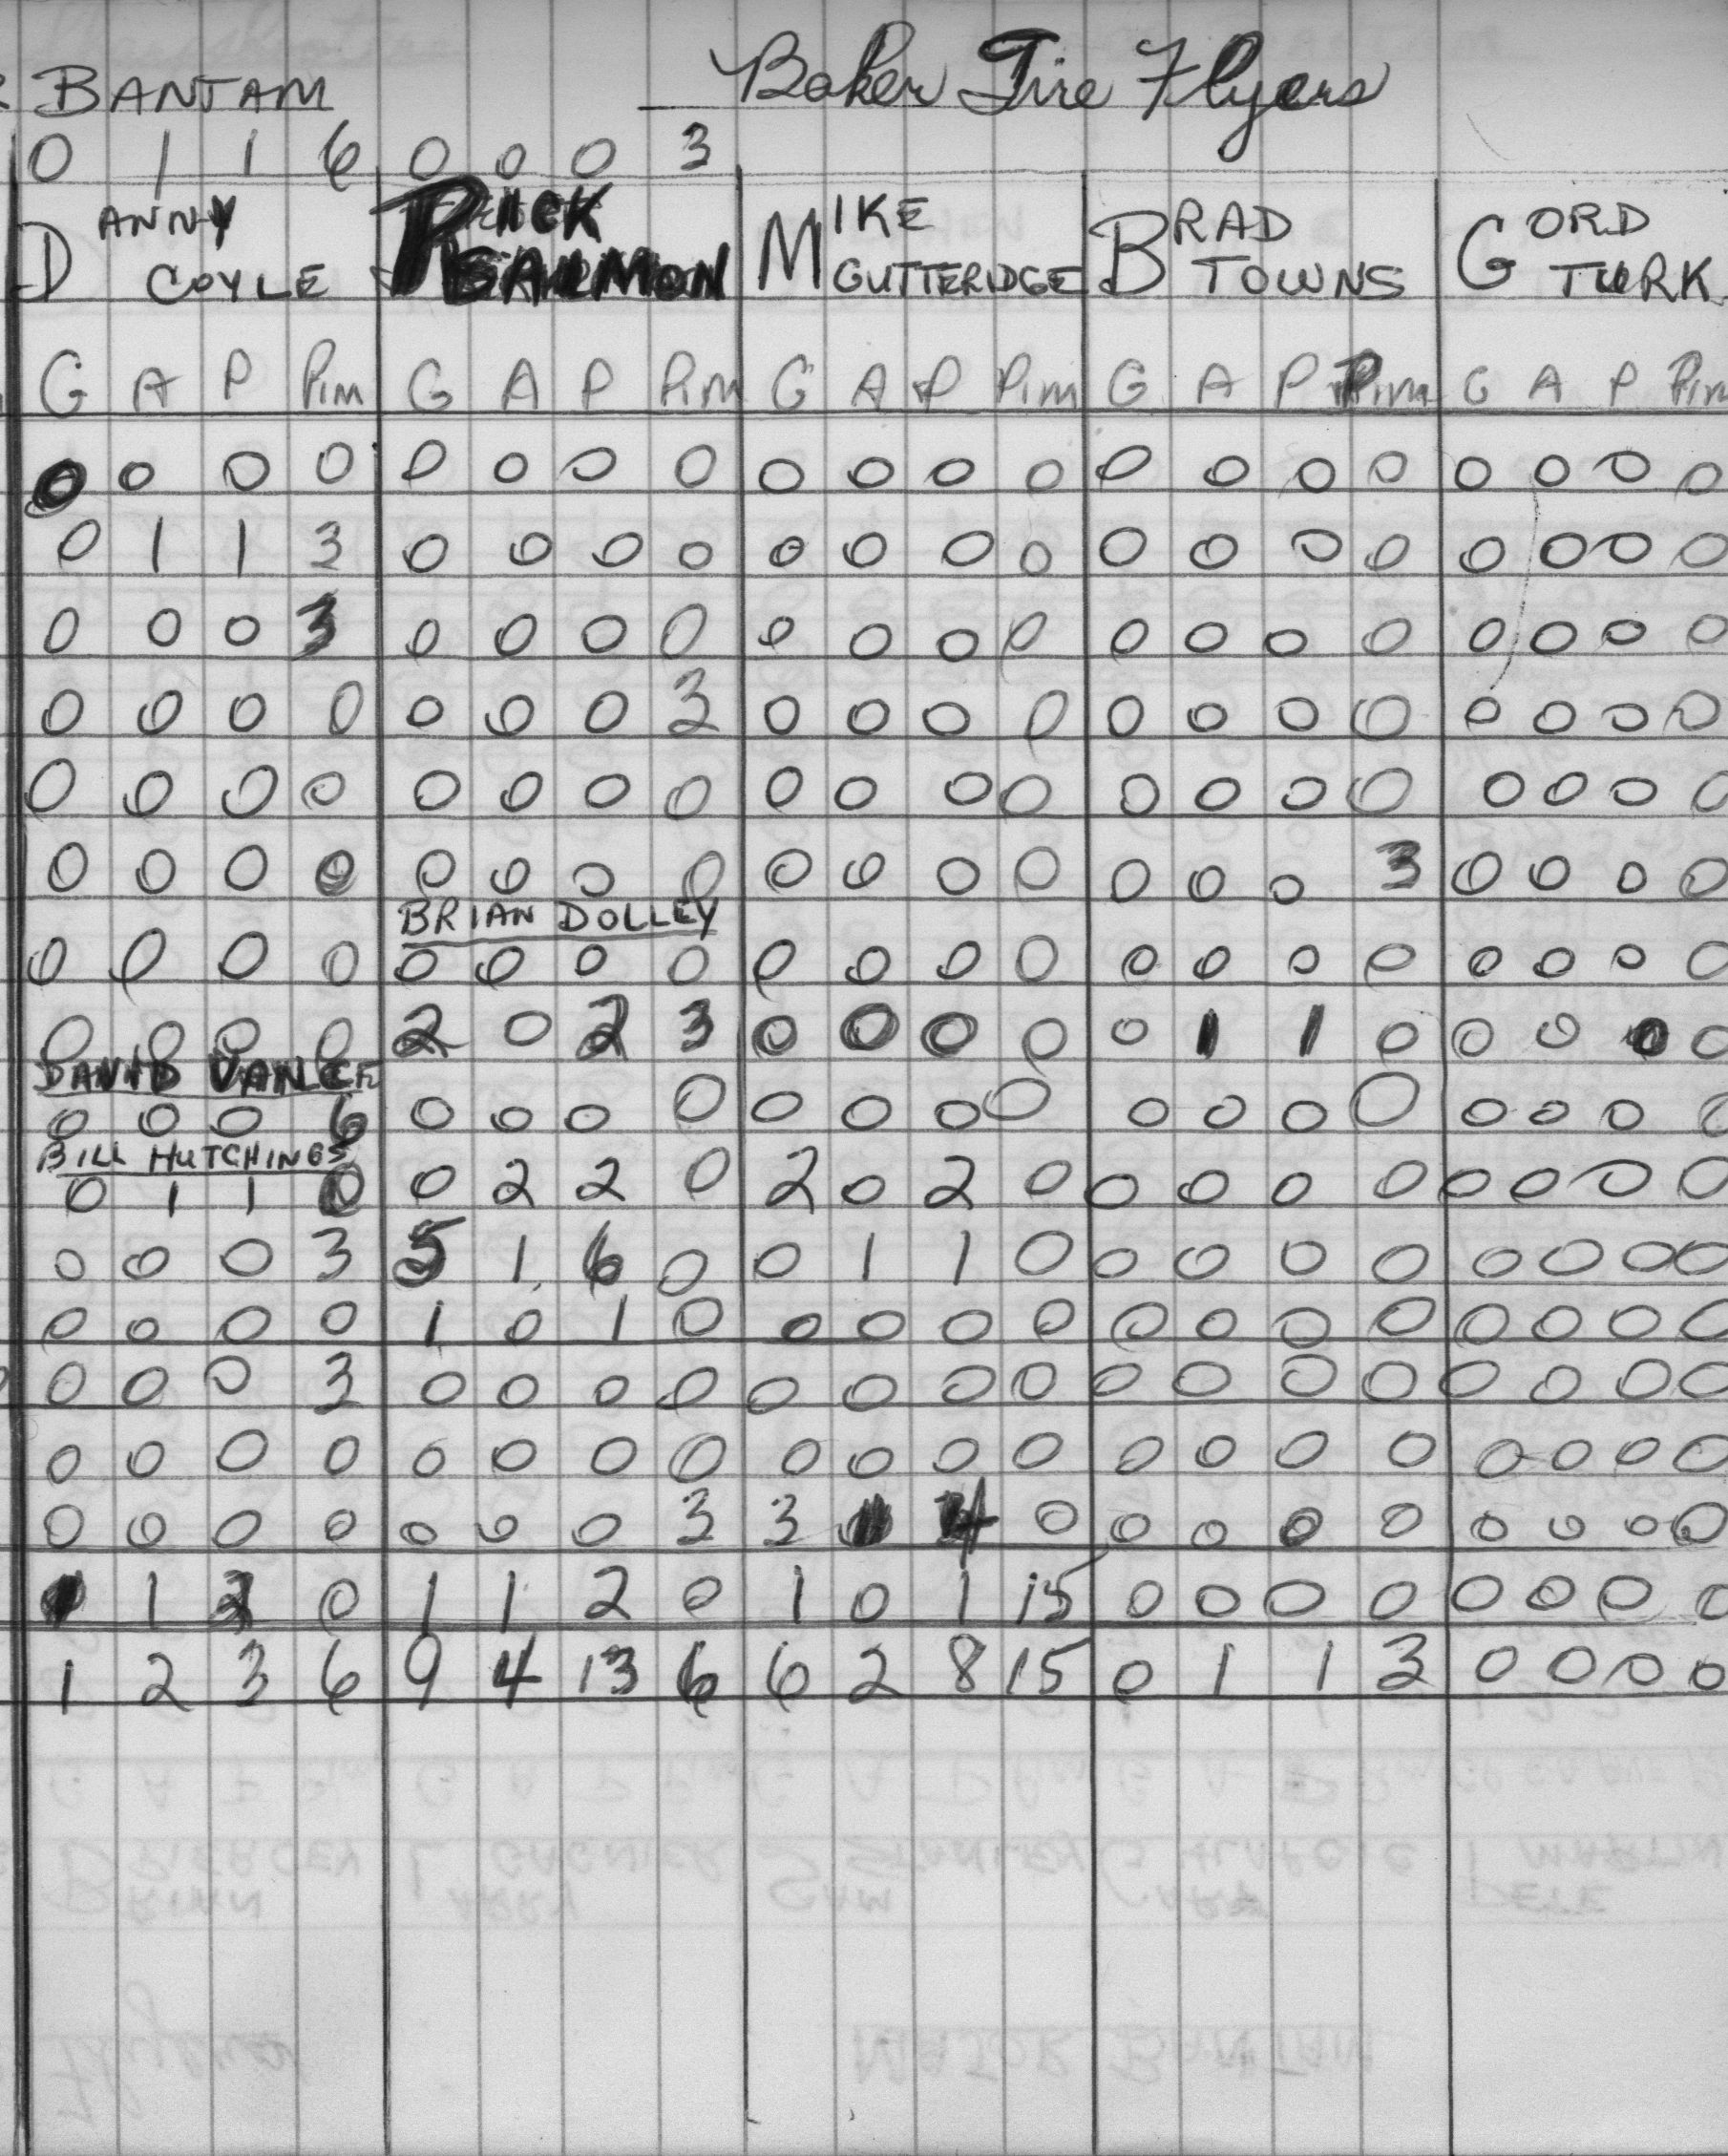 BANTAM Baker Tire Flyers
0 1 1 6 0 0 0 3
DANNY COYLE RICK SALMON MIKE GUTTERIDGE BRAD TOWNS GORD TURK
G A P Pim G A P Pim G A P Pim G A P Pim G A P Pim
0 0 0 0 0 0 0 0 0 0 0 0 0 0 0 0 0 0 0 0
0 1 1 3 0 0 0 0 0 0 0 0 0 0 0 0 0 0 0 0
0 0 0 3 0 0 0 0 0 0 0 0 0 0 0 0 0 0 0 0
0 0 0 0 0 0 0 3 0 0 0 0 0 0 0 0 0 0 0 0
0 0 0 0 0 0 0 0 0 0 0 0 0 0 0 0 0 0 0 0
0 0 0 0 0 0 0 0 0 0 0 0 0 0 0 3 0 0 0 0
BRIAN DOLLEY
0 0 0 0 0 0 0 0 0 0 0 0 0 0 0 0 0 0 0 0
0 0 0 0 2 0 2 3 0 0 0 0 0 1 1 0 0 0 0 0
DAVID VANCE
0 0 0 6 0 0 0 0 0 0 0 0 0 0 0 0 0 0 0 0
BILL HUTCHINGS
0 1 1 0 0 2 2 0 2 0 2 0 0 0 0 0 0 0 0 0
0 0 0 3 5 1 6 0 0 1 1 0 0 0 0 0 0 0 0 0
0 0 0 0 1 0 1 0 0 0 0 0 0 0 0 0 0 0 0 0
0 0 0 3 0 0 0 0 0 0 0 0 0 0 0 0 0 0 0 0
0 0 0 0 0 0 0 0 0 0 0 0 0 0 0 0 0 0 0 0
0 0 0 0 0 0 0 3 3 1 4 0 0 0 0 0 0 0 0 0
1 1 2 0 1 1 2 0 1 0 1 15 0 0 0 0 0 0 0 0
1 2 3 6 9 4 13 6 6 2 8 15 0 1 1 3 0 0 0 0